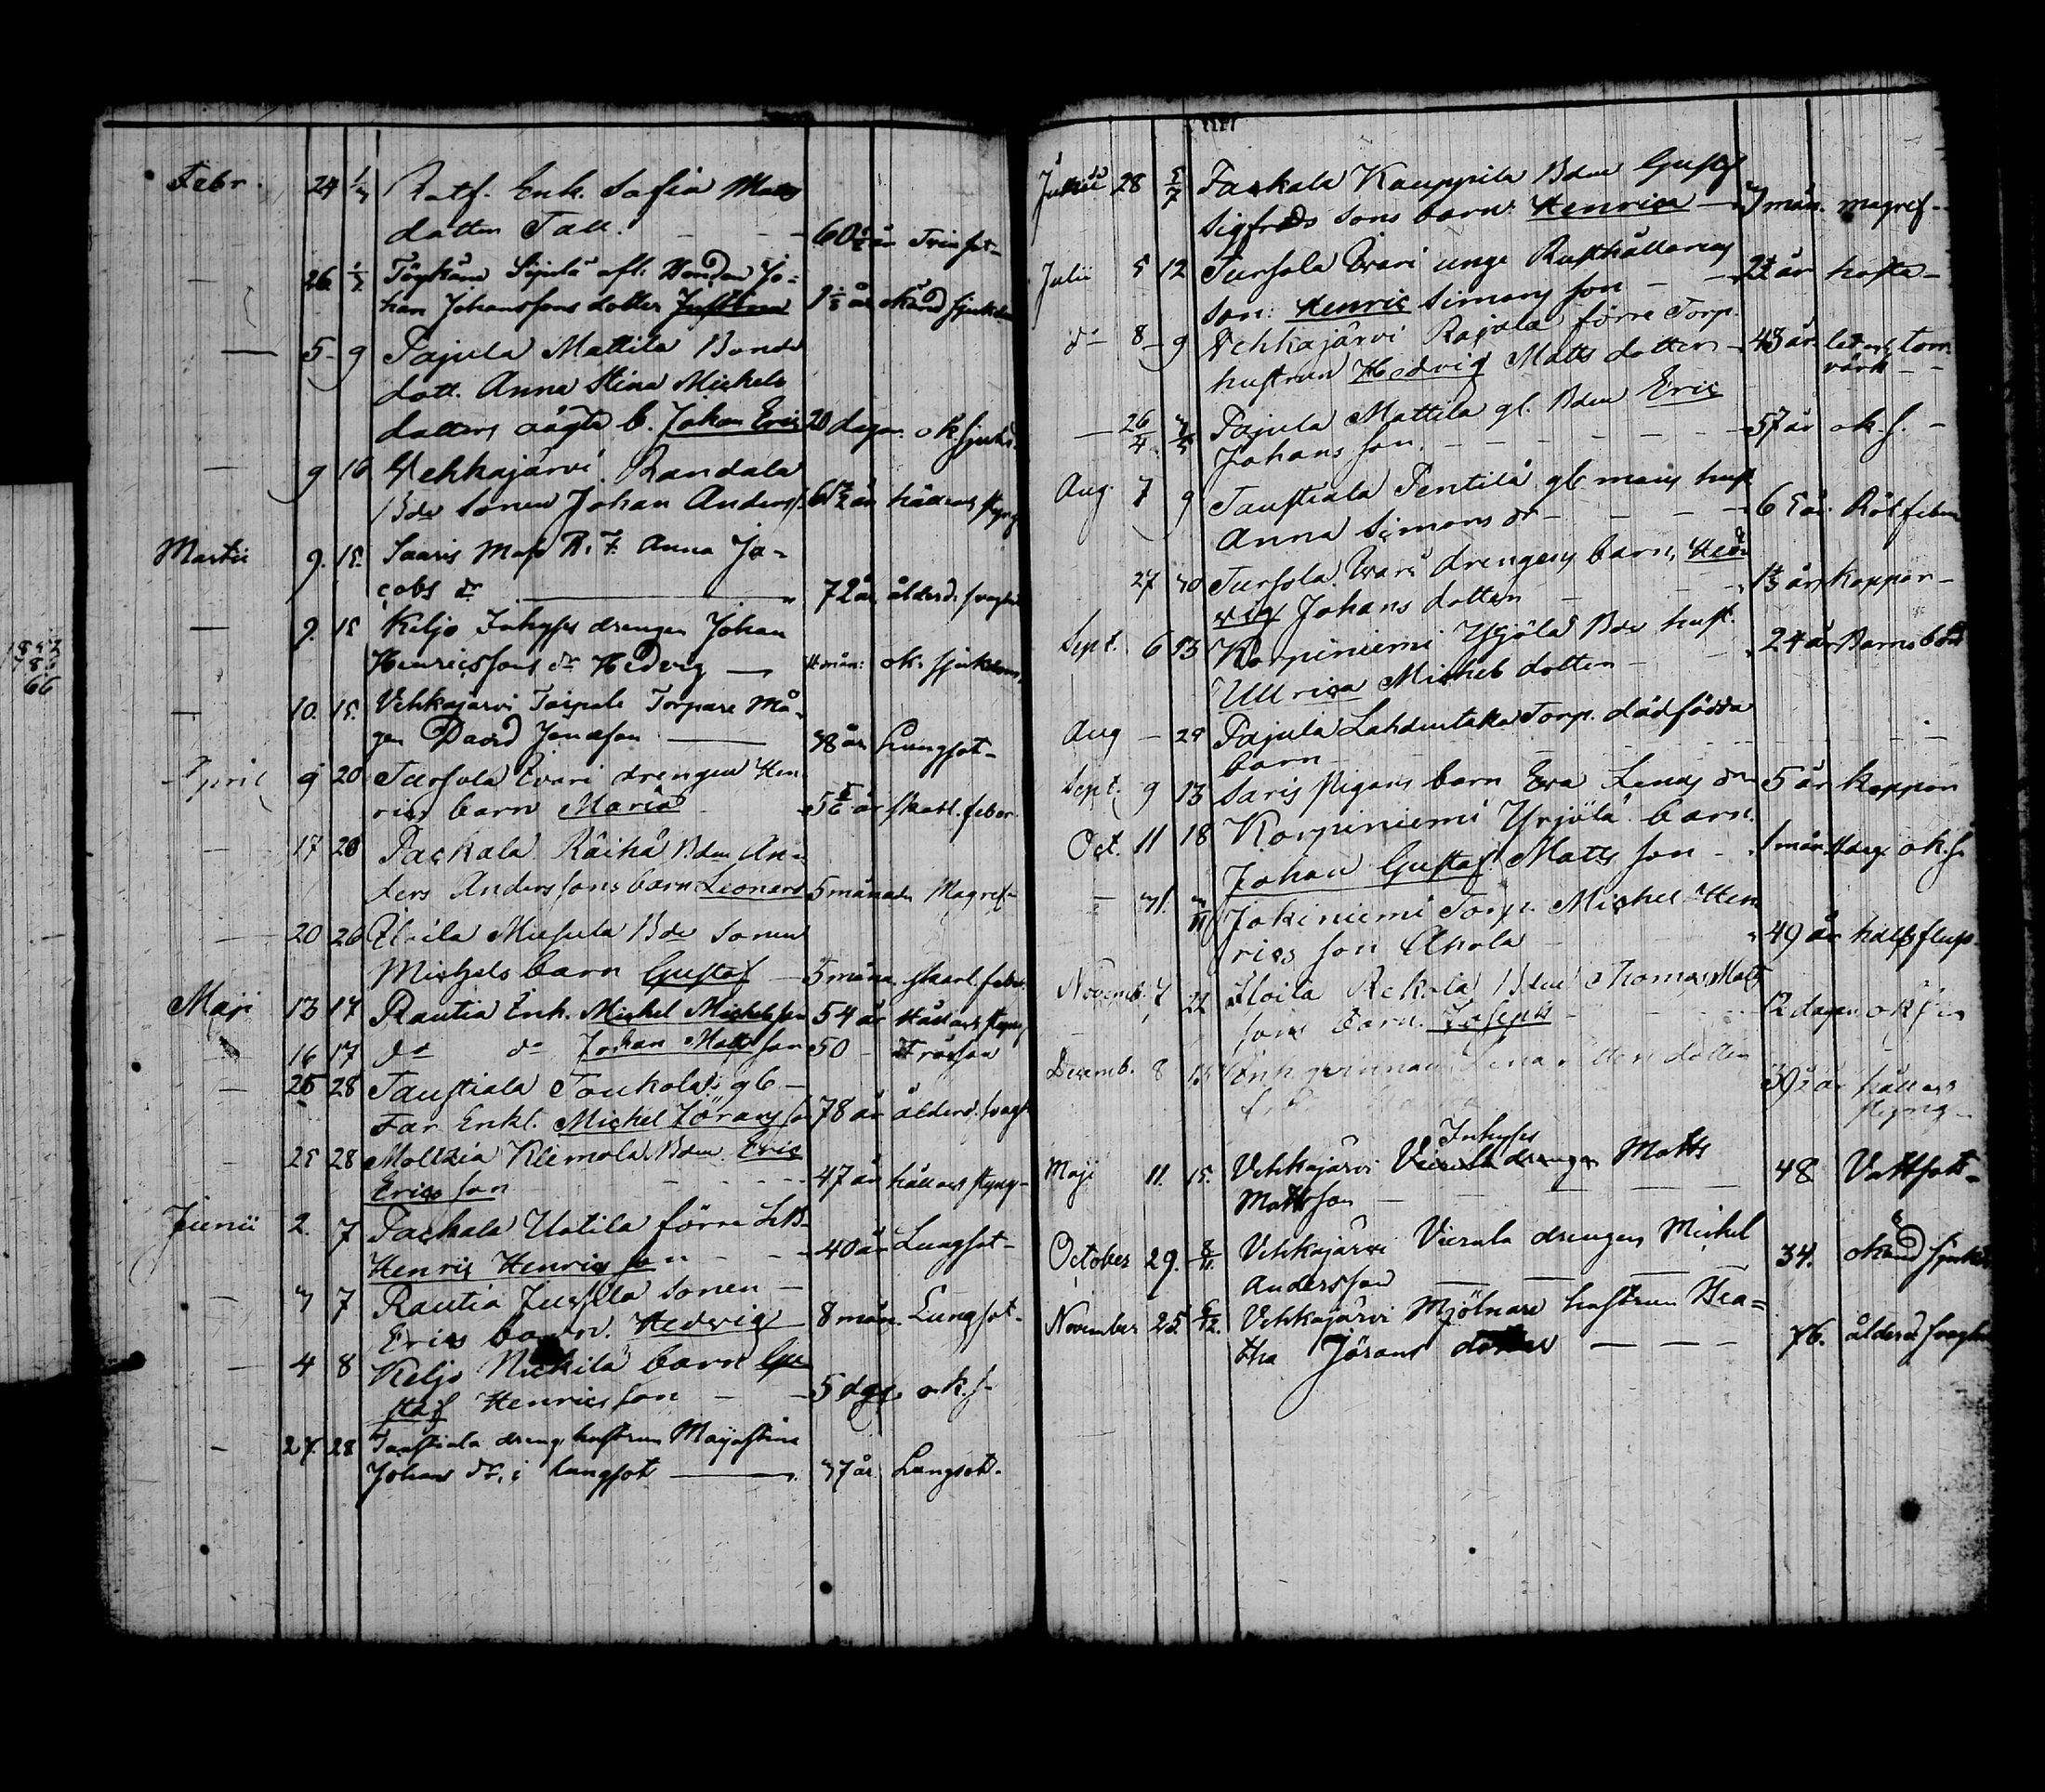 Febr. 24 1/3 Rotf. Enk. Sofia Mats
dotter Tall. 60 1/2 år Tvinsot
26 1/2 Sipilä afl. Bonden Jo=
han Johanssons dotter Justina okänd sjukdom
5 9 Pajula Mattila Bonde
dott. Anna Stina Michels
dotters oägta b. Johan Eric 20 dagar. ok. sjukd.
9 16 Vehkajärvi Randala
Bde sonen Johan Anderss. håll och styng
Martii 9. 15. Saaris Anna Ja-
cobs dr 72 år ålderd. svaghet
9. 15 Keljo Inhyses drengen Johan
Henricssons dr Hedvig — mån: ok. sjukdom
10. 15. Vehkajärvi Taipale Torpare Må-
gen David Jonasson 38 år Lungsot
April 9 20 Tursola Evari drengen Hen
rics barn Maria skarl. feber
17 20 Packala Räihä Bden An-
ders Anderssons barn Leonard 5 månader Magref
20 26 Eloila Bde sonen
Michels barn Gustaf 5 måna. skarl. feber
Maji 13 17 Rautia Enk. Michel Michelsson 54 år Håll och styng
16 17 do do Johan Mattsson 50 Frossan
25 28 Taustiala Toukola gl
Far Enkl. Michel Jöransson 78 år ålderd. svagh
25 28 Moltzia Klemola Bden Eric
Ericsson 47 år håll och styng
Junii 2. 7 Packala Uotila förre
Henric Henricsson 40 år Lungsot
3 7 Rautia Jussila sonen
Erics barn. Hedvig 8 mån. Lungsot.
4 8 Keljo Nickilä barn Gu
staf Henricsson 5 dgr o.k.s.
27. 28 Taustiala dreng hustrun Majastina
Johans dr, i lungsot 37 år Lungsot.
28 5/7 Packala Kauppila Bden Gustaf
Sigfrids sons barn Henrica 3 mån. magref
Julii 5 12 Tursola Evari unge Rusthållarens
son: Henric Simons son 22 år hosta
do 8 9 Vehkajärvi Rajala förre Torp.
hustrun Hedvig Matts dotter 43 år led och torr
värk
26/4 Pajula Mattila gl. Bden Eric
Johansson. 57 år ok. s.
Aug. 7 9 Taustiala Pentilä gl mans hust
Anna Simons dr 65 år. Rötfeber
27 30 Tursola Evari drengens barn, Hed
vig Johans dotter koppor
Sept. 6 13 Korpiniemi Yrjölä Bde hust.
Ullrica Michels dotter 24 år Barnsbörd
Aug 29 Pajula Torp. dödfödda
barn
Sept. 9 13 Saris Pigans barn Eva Lenas dr 5 år koppor
Oct. 11 18 Korpiniemi Yrjölä barn.
Johan Gustaf Matts son 1 mån ok. s.
31. 3/11 Jokiniemi Torp. Michel Hen
rics son Ahola 49 år
Novemb. 7 22 Eloila Rekola Bden Thomas Matts
sons barn. Joseph 12 dagar ok s
Decemb. 8 Lena dotter
39 1/2 år håll och
styng
Maji 11. 15. Vehkajärvi Inhyses
Vierula drengen Matts
Mattsson 48 Vattsot
October 29. 8/11 Vehkajärvi Vierula drengen Michel
Andersson 34. okänd sjukd
November 25 6/12. Vehkajärvi Mjölnare hustrun Bea=
tha Jörans dotter 76. ålderd. svaghet